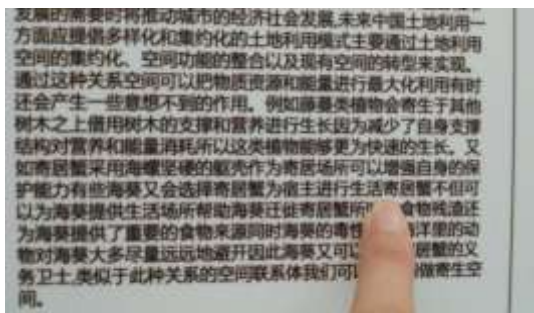 发展的需要时将推动城市的经济社会发展,未来中国土地利用一
方面应提倡多样化和集约化的土地利用模式主要通过土地利用
空间的集约化、空间功能的整合以及现有空间的转型来实现。
通过这种关系空间可以把物质资源和能量进行最大化利用有时
还会产生一些意想不到的作用。例如藤蔓类植物会寄生于其他
树木之上借用树木的支撑和营养进行生长因为减少了自身支撑
结构对营养和能量消耗所以这类植物能够更为快速的生长。又
如寄居蟹采用海螺坚硬的躯壳作为寄居场所可以增强自身的保
护能力有些海葵又会选择寄居蟹为宿主进行生活寄居蟹不但可
以为海葵提供生活场所帮助海葵迁徙寄居蟹所 食物残渣还
为海葵提供了重要的食物来源同时海葵的毒性 海洋里的动
物对海葵大多尽量远远地避开因此海葵又可以 居蟹的义
务卫士,类似于此种关系的空间联系体我们可 做寄生空
间。